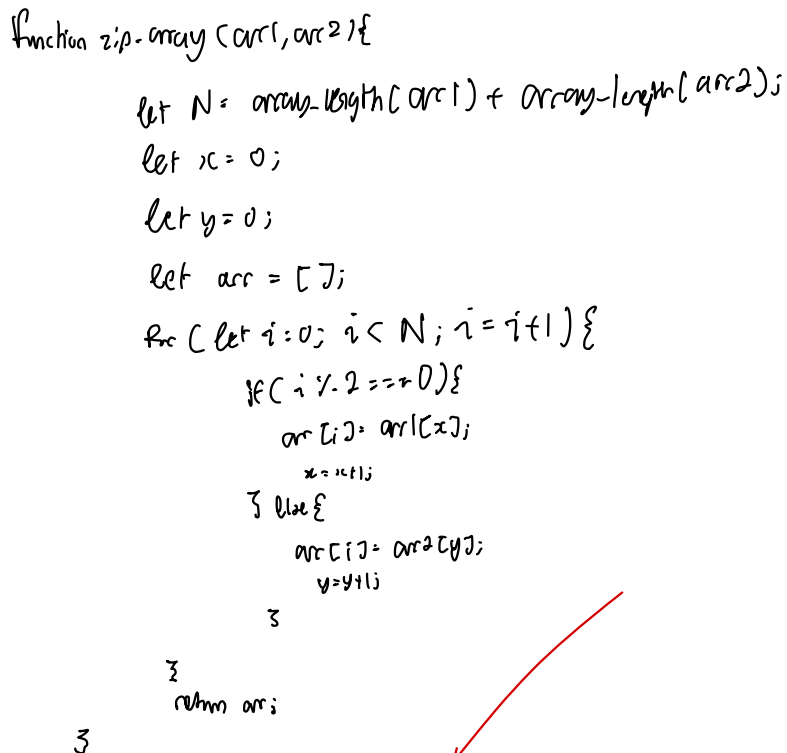 function zip_array (arr1, arr2){
let N = array_length(arr1) + array_length(arr2);
let x = 0;
let y = 0;
let arr = [];
for (let i = 0; i < N; i = i+1){
if( i % 2 === 0){
arr [i] = arr1[x];
x = x+1;
} else {
arr[i] = arr2[y];
y=y+1;
}
}
return arr;
}